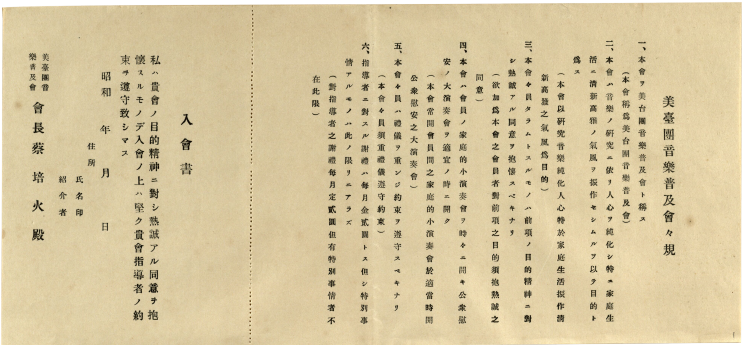 美臺團音樂普及會々規
一、本會ヲ美台團音樂普及會ト稱ス
(本會稱爲美台團音樂普及會)
二、本會ハ音樂ノ研究ニ依リ人心ヲ純化シ特ニ家庭生
活ニ清新高雅ノ氣風ヲ振作セシムルヲ以テ目的ト
爲ス
(本會以研究音樂純化人心特於家庭生活振作清
新高雅之氣風爲目的)
三、本會々員タラムトスルモノハ前項ノ目的精神ニ對
シ熱誠アル同意ヲ抱懷スベキナリ
(欲加爲本會之會員者對前項之目的須抱熱誠之
同意)
四、本會ハ會員ノ家庭的小演奏會ヲ時々ニ開キ公衆慰
安ノ大演奏會ヲ適宜ノ時ニ開ク
(本會常開會員間之家庭的小演奏會於適當時開
公衆慰安之大演奏會)
五、本會々員ハ禮儀ヲ重ンジ約束ヲ遵守スベキナリ
(本會々員須重禮儀遵守約束)
六、指導者ニ對スル謝禮ハ每月金貳圓トス但シ特別事
情アルモノハ此ノ限リニアラズ
(對指導者之謝禮每月定貳圓但有特別事情者不
在此限)
入會書
私ハ貴會ノ目的精神ニ對シ熱誠アル同意ヲ抱
懷スルモノデ入會ノ上ハ堅ク貴會指導者ノ約
束ヲ遵守致シマス
昭和 年 月 日
住所
氏名印
紹介者
美臺團音
樂普及會 會長蔡培火殿